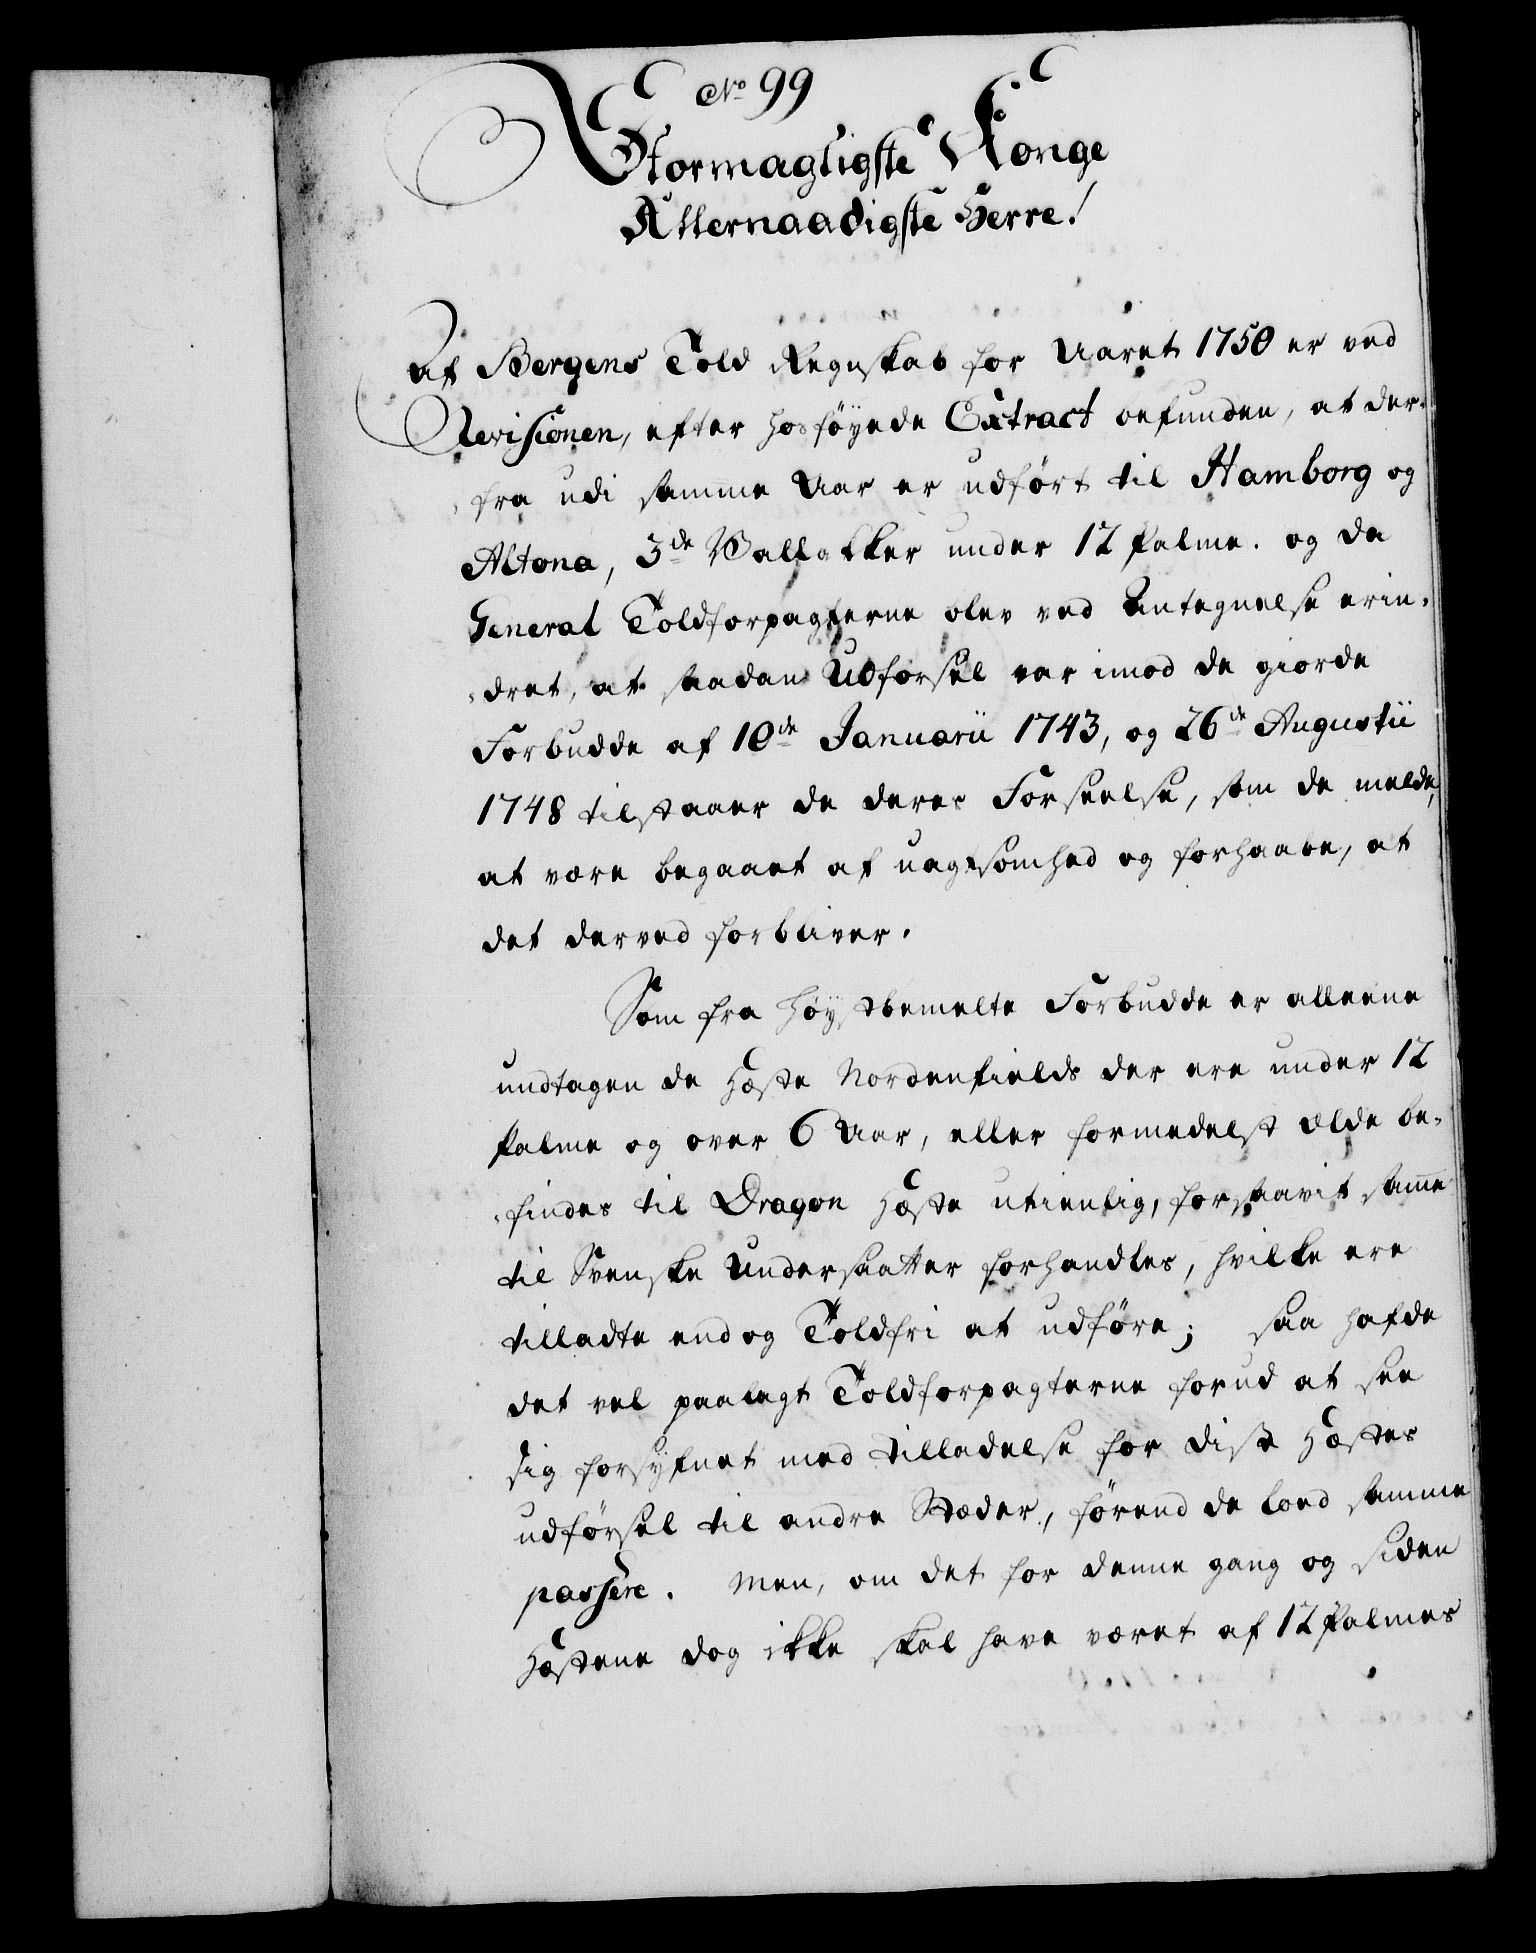 No 99
Stormagtigste Konge
Allernaadigste Herre!
Af Bergens Told Regnskab for Aaret 1750 er ved
Revisionen, efter hosföyede Extract befunden, at der-
fra udi samme Aar er udfört til Hamborg og
Altona, 3de Vallakker under 12 Palme. og da
General Toldforpagterne blev ved Antegnelse erin-
dret, at saadan Udførsel var imod de giorde
Forbudde af 10de Januarii 1743, og 26de Augustii
1748 tilstaaer de deres Forseelse, som de melde,
at være begaaet af uagtsomhed og forhaabe, at
det derved forbliver.
Som fra höystbemelte Forbudde er alleene
undtagen de Hæste Nordenfields der ere under 12
Palme og over 6 Aar, eller formedelst ælde be-
findes til Dragon Hæste utienlig, forsaavit samme
til Svenske Undersaatter forhandles, hvilke ere
tilladte endog Toldfri at udföre; saa hafde
det vel paalagt Toldforpagterne forud at see
sig forsyfnet med tilladelse for disse Hæstes
udførsel til andre Stæder, förend de loed samme
passere. Men, om det for denne gang og siden
Hæstene dog ikke skal have været af 12 Palmes